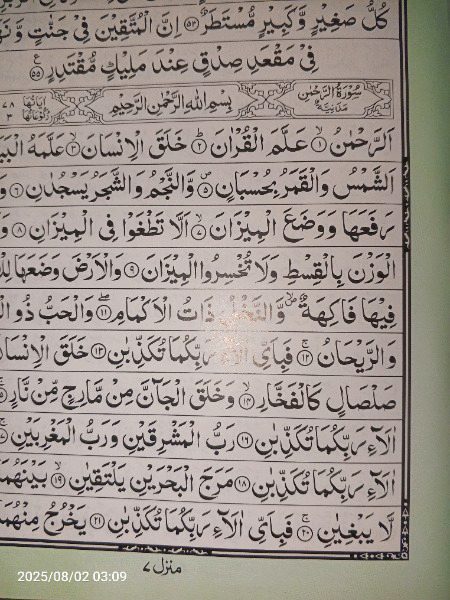 كُلُّ صَغِيْرٍ وَّكَبِيْرٍ مُّسْتَطَرٌ ۝۵۳ اِنَّ الْمُتَّقِيْنَ فِيْ جَنّٰتٍ
فِيْ مَقْعَدِ صِدْقٍ عِنْدَ مَلِيْكٍ مُّقْتَدِرٍ ۝۵۵ ع
سُوْرَةُ الرَّحْمٰنِ مَدَنِيَّةٌ بِسْمِ اللهِ الرَّحْمٰنِ الرَّحِيْمِ اٰيَاتُهَا ٧٨ رُكُوْعَاتُهَا ٣
اَلرَّحْمٰنُ ۝۱ عَلَّمَ الْقُرْاٰنَ ۝۲ خَلَقَ الْاِنْسَانَ ۝۳ عَلَّمَهُ
اَلشَّمْسُ وَالْقَمَرُ بِحُسْبَانٍ ۝۵ وَّالنَّجْمُ وَالشَّجَرُ يَسْجُدٰنِ ۝۶
رَفَعَهَا وَوَضَعَ الْمِيْزَانَ ۝۷ اَلَّا تَطْغَوْا فِي الْمِيْزَانِ ۝۸
الْوَزْنَ بِالْقِسْطِ وَلَا تُخْسِرُوا الْمِيْزَانَ ۝۹ وَالْاَرْضَ وَضَعَهَا
فِيْهَا فَاكِهَةٌ وَّالنَّخْلُ ذَاتُ الْاَكْمَامِ ۝۱۱ وَالْحَبُّ ذُو
وَالرَّيْحَانُ ۝۱۲ فَبِاَيِّ اٰلَآءِ رَبِّكُمَا تُكَذِّبٰنِ ۝۱۳ خَلَقَ الْاِنْسَانَ
صَلْصَالٍ كَالْفَخَّارِ ۝۱۴ وَخَلَقَ الْجَآنَّ مِنْ مَّارِجٍ مِّنْ نَّارٍ
اٰلَآءِ رَبِّكُمَا تُكَذِّبٰنِ ۝۱۶ رَبُّ الْمَشْرِقَيْنِ وَرَبُّ الْمَغْرِبَيْنِ
اٰلَآءِ رَبِّكُمَا تُكَذِّبٰنِ ۝۱۸ مَرَجَ الْبَحْرَيْنِ يَلْتَقِيٰنِ ۝۱۹ بَيْنَهُمَا
لَّا يَبْغِيٰنِ ۝۲۰ فَبِاَيِّ اٰلَآءِ رَبِّكُمَا تُكَذِّبٰنِ ۝۲۱ يَخْرُجُ مِنْهُمَا
منزل ٧
2025/08/02 03:09